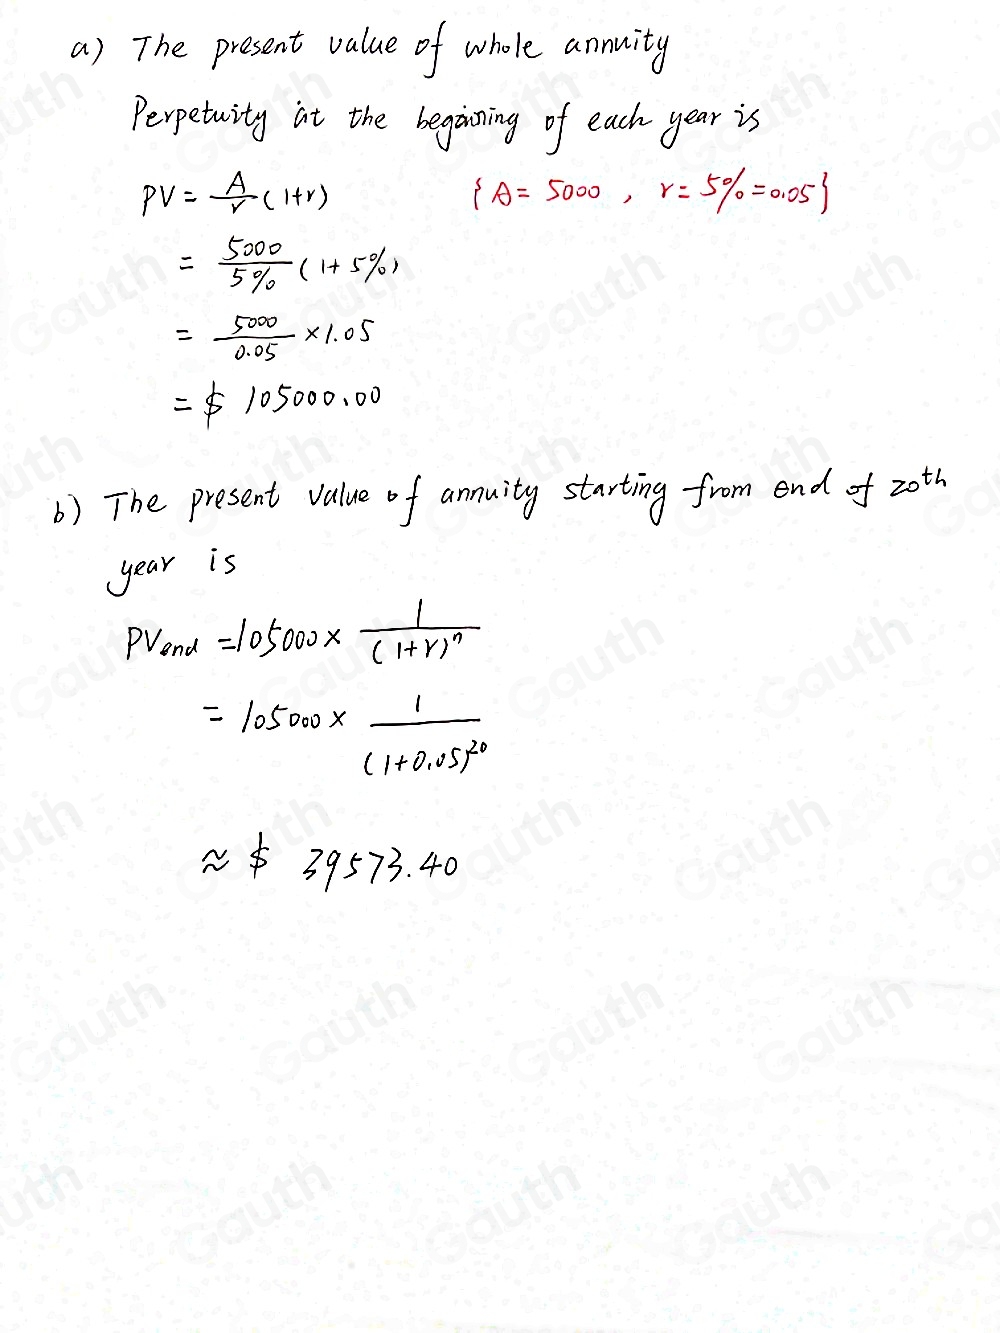 a) The present value of whole annuity
Perpetuity at the begaining of each year is
PV = A/r (1+r) {A = 5000 , r = 5% = 0.05}
= 5000/5% (1 + 5%)
= 5000/0.05 × 1.05
= $ 105000.00
b) The present value of annuity starting from end of 20th
year is
PVend = 105000 × 1/(1+r)^n
= 105000 × 1/(1+0.05)^20
≈ $ 39573.40
Gauth